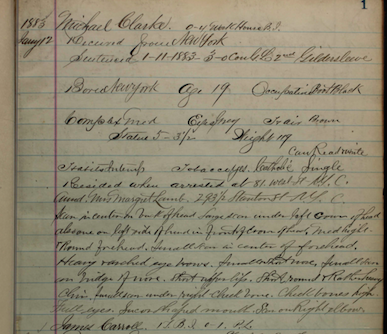 1
1883
Jany 12
Michael Clarke 0-4 Work House B.I.
Received from New York
Sentenced 1-11-1883 3-0 Gildersleeve
Born New York Age 19 Occupation Boot Black
Complex Med Eyes Grey Hair Brown
Stature 5-3½ Weight 119
Can Read write
Habits Intemp Tobacco yes. Catholic Single
Resided when arrested at 81 West St N.Y.C.
Aunt, Mrs Margret Lamb. 293½ Stanton St N.Y.C.
Scar in center on of head large scar under left crown of head
also one on left side of head in front of crown of head. Med high
Round forehead. Small scar in center of forehead.
Heavy arched eye brows. Small nose, small scar
on bridge of nose. upper lip. Round &
Chin. Small scar under right cheek bone. Cheek bones high
eyes. mouth. Scar on Right elbow.
James Carroll